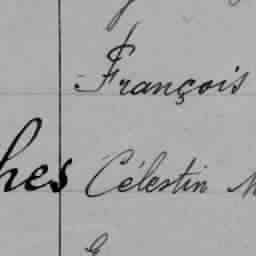 François
hes Célestin